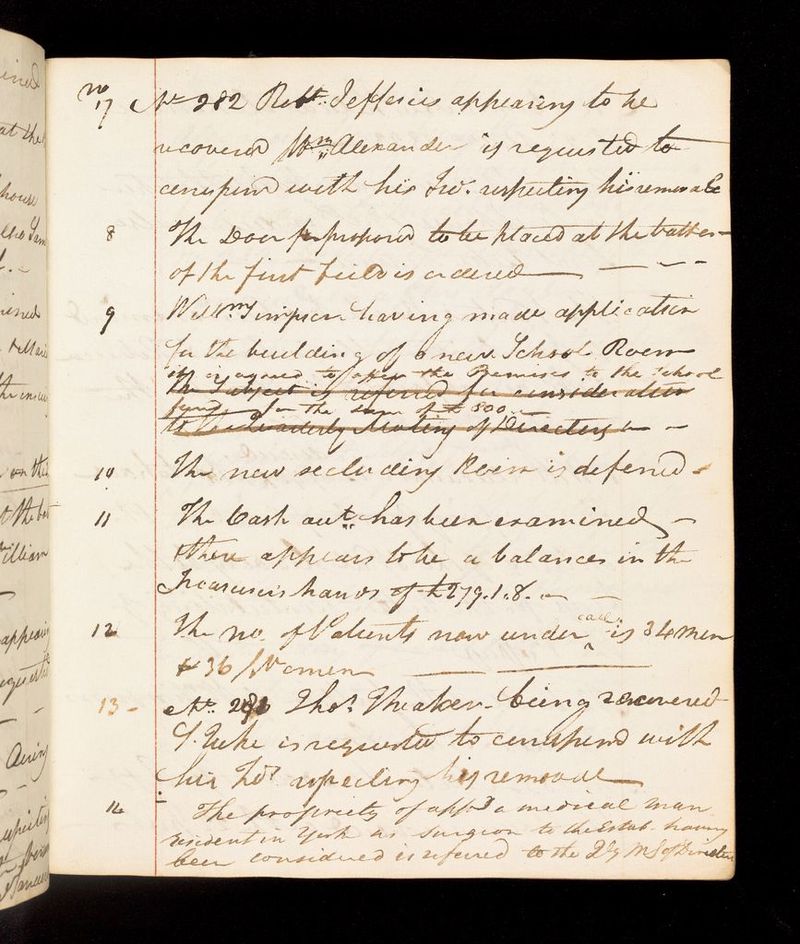 no
17 No 282 Robt. Jefferies appearing to be
recovered Wm Alexander is requested to
correspond with his Frds. respecting his removal
8 The Door proposed to be placed at the bottom
of the first field is ordered
9 Willm Simpson having made application
for the building of a new School Room
it is agreed to offer the Premises to the School
The subject is referred for consideration
fund for the sum of £ 800.
to the Quarterly Meeting of Directors
10 The new secluding Room is deferred
11 The Cash acct. has been examined
there appears to be a balance in the
Treasurers hands of £279.1.8.
care
12 The no. of Patients now under ^ is 34 men
& 36 Women
13 No. Thos. Theaker being recovered
S. Tuke is requested to correspond with
his Frds respecting his removal
14 The propriety of appg a medical man
resident in York as Surgeon to the Estab. having
been considered is referred to the Qy Mg of Directors